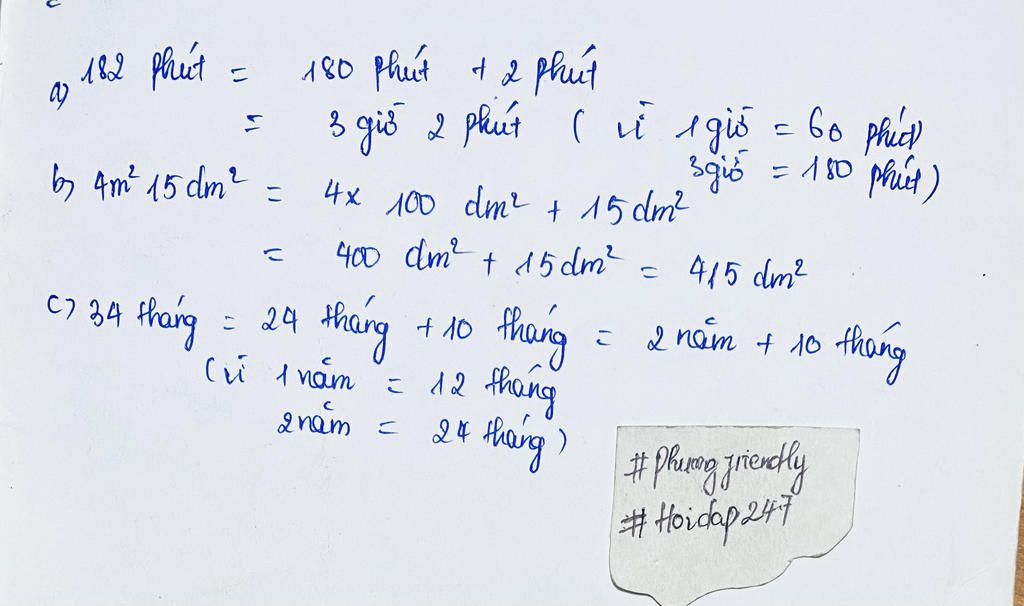 a) 182 phút = 180 phút + 2 phút
= 3 giờ 2 phút ( vì 1 giờ = 60 phút
3 giờ = 180 phút )
b) 4m² 15 dm² = 4 x 100 dm² + 15 dm²
= 400 dm² + 15 dm² = 415 dm²
c) 34 tháng = 24 tháng + 10 tháng = 2 năm + 10 tháng
( vì 1 năm = 12 tháng
2 năm = 24 tháng )
# Phuong friendly
# Hoidap247